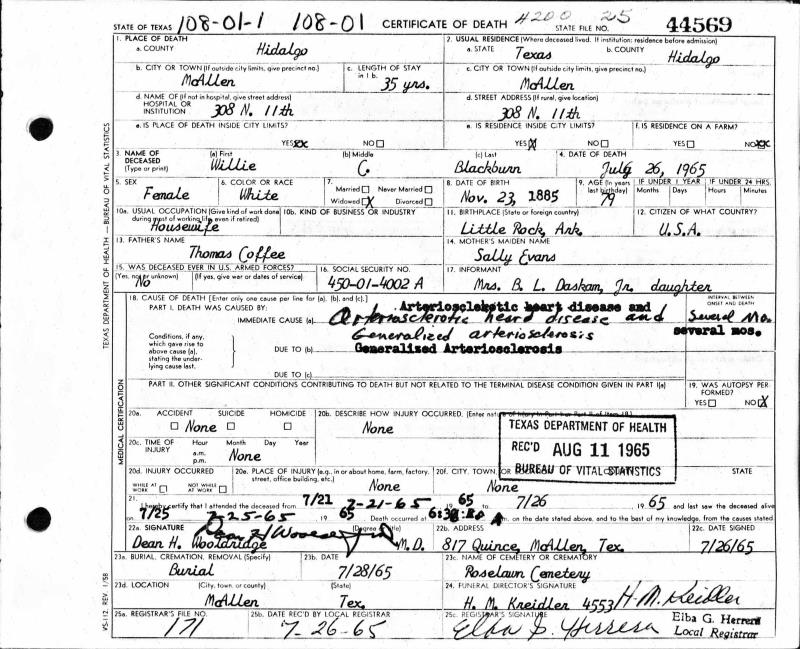 STATE OF TEXAS 108-01-1 108-01 CERTIFICATE OF DEATH 4200 25 STATE FILE NO. 44569
1. PLACE OF DEATH
a. COUNTY Hidalgo
2. USUAL RESIDENCE (Where deceased lived. If institution: residence before admission)
a. STATE Texas b. COUNTY Hidalgo
b. CITY OR TOWN (If outside city limits, give precinct no.) McAllen
c. LENGTH OF STAY in 1 b. 35 yrs.
c. CITY OR TOWN (If outside city limits, give precinct no.) McAllen
d. NAME OF (If not in hospital, give street address) HOSPITAL OR INSTITUTION 308 N. 11th
d. STREET ADDRESS (If rural, give location) 308 N. 11th
e. IS PLACE OF DEATH INSIDE CITY LIMITS? YES XX NO
e. IS RESIDENCE INSIDE CITY LIMITS? YES X NO
f. IS RESIDENCE ON A FARM? YES NO XX
3. NAME OF DECEASED (Type or print)
(a) First Willie (b) Middle C. (c) Last Blackburn
4. DATE OF DEATH July 26, 1965
5. SEX Female
6. COLOR OR RACE White
7. Married Never Married Widowed X Divorced
8. DATE OF BIRTH Nov. 23, 1885
9. AGE (In years last birthday) 79
IF UNDER 1 YEAR Months Days
IF UNDER 24 HRS. Hours Minutes
10a. USUAL OCCUPATION (Give kind of work done during most of working life, even if retired) Housewife
10b. KIND OF BUSINESS OR INDUSTRY
11. BIRTHPLACE (State or foreign country) Little Rock, Ark.
12. CITIZEN OF WHAT COUNTRY? U.S.A.
13. FATHER'S NAME Thomas Coffee
14. MOTHER'S MAIDEN NAME Sally Evans
15. WAS DECEASED EVER IN U.S. ARMED FORCES? (Yes, no, or unknown) (If yes, give war or dates of service) No
16. SOCIAL SECURITY NO. 450-01-4002 A
17. INFORMANT Mrs. B. L. Daskam, Jr. daughter
18. CAUSE OF DEATH [Enter only one cause per line for (a), (b), and (c).]
INTERVAL BETWEEN ONSET AND DEATH
PART I. DEATH WAS CAUSED BY: Arteriosclerotic heart disease and
IMMEDIATE CAUSE (a) Arteriosclerotic heard disease and Several Mo.
Generalized arteriosclerosis several mos.
Conditions, if any, which gave rise to above cause (a), stating the underlying cause last.
DUE TO (b) Generalized Arteriosclerosis
DUE TO (c)
PART II. OTHER SIGNIFICANT CONDITIONS CONTRIBUTING TO DEATH BUT NOT RELATED TO THE TERMINAL DISEASE CONDITION GIVEN IN PART I(a)
19. WAS AUTOPSY PERFORMED? YES NO X
20a. ACCIDENT SUICIDE HOMICIDE None
20b. DESCRIBE HOW INJURY OCCURRED. None
20c. TIME OF INJURY Hour a.m. p.m. Month Day Year None
TEXAS DEPARTMENT OF HEALTH
REC'D AUG 11 1965
BUREAU OF VITAL STATISTICS
20d. INJURY OCCURRED WHILE AT WORK NOT WHILE AT WORK
20e. PLACE OF INJURY (e.g., in or about home, farm, factory, street, office building, etc.) None
20f. CITY, TOWN, OR None STATE
21. I hereby certify that I attended the deceased from 7/21 7-21-65 65 7/26, 1965 and last saw the deceased alive
on 7/25 7-25-65 19 65 Death occurred at m. on the date stated above, and to the best of my knowledge, from the causes stated
22a. SIGNATURE (Degree) Dean H. Wooldridge M.D.
22b. ADDRESS 817 Quince, McAllen, Tex.
22c. DATE SIGNED 7/26/65
23a. BURIAL, CREMATION, REMOVAL (Specify) Burial
23b. DATE 7/28/65
23c. NAME OF CEMETERY OR CREMATORY Roselawn Cemetery
23d. LOCATION (City, town, or county) (State) McAllen Tex.
24. FUNERAL DIRECTOR'S SIGNATURE H. M. Kreidler 4553 H. M. Kreidler
25a. REGISTRAR'S FILE NO. 171
25b. DATE REC'D BY LOCAL REGISTRAR 7-26-65
25c. REGISTRAR'S SIGNATURE Elba G. Herrera
Elba G. Herrera
Local Registrar
TEXAS DEPARTMENT OF HEALTH — BUREAU OF VITAL STATISTICS
MEDICAL CERTIFICATION
VS-112 REV. 1/58